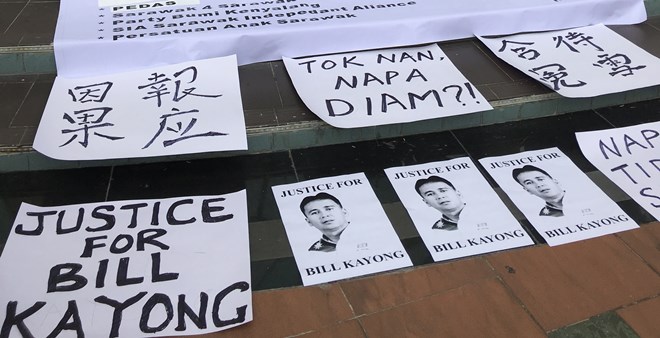 SEDAS
Party Bumi Kenyalang
SIA Sarawak Independent Alliance
Persatuan Anak Sarawak
因果
報应
TOK NAN,
NAPA
DIAM?!
含冤
待雪
JUSTICE
FOR
BILL
KAYONG
JUSTICE FOR
BILL KAYONG
JUSTICE FOR
BILL KAYONG
JUSTICE FOR
BILL KAYONG